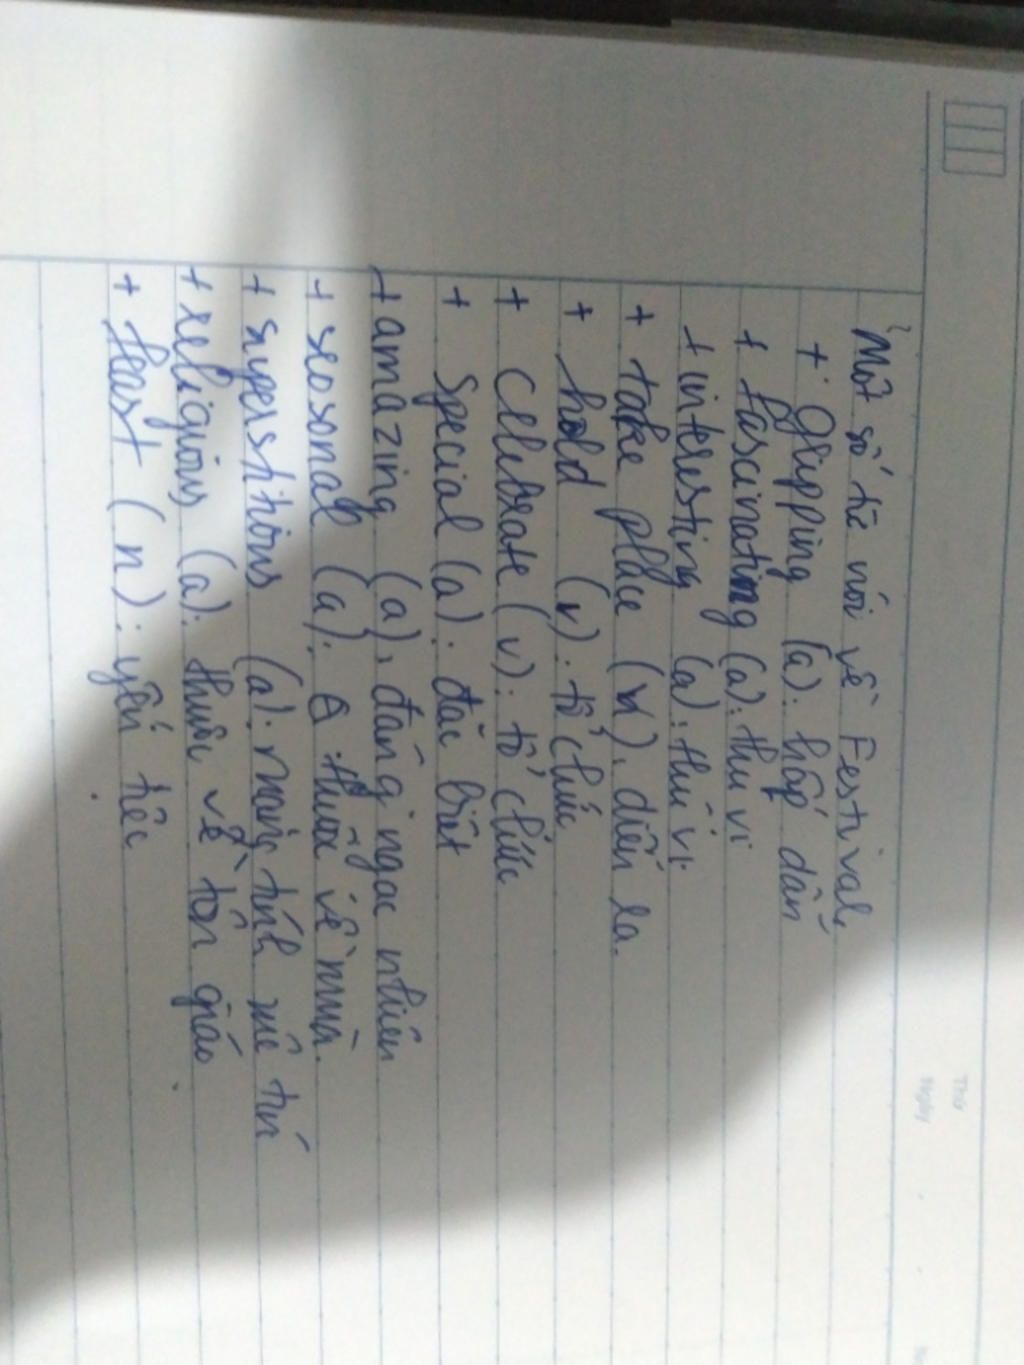 Một số từ nói về Festival
+ gripping (a): hấp dẫn
+ fascinating (a): thú vị
+ interesting (a): thú vị
+ take place (v): diễn ra.
+ hold (v): tổ chức
+ celebrate (v): tổ chức
+ special (a): đặc biệt
+ amazing (a): đáng ngạc nhiên
+ seosonal (a): thuộc về mùa.
+ superstitious (a): mang tính mê tín
+ religious (a): thuộc về tôn giáo
+ feast (n): yến tiệc
Thứ
Ngày